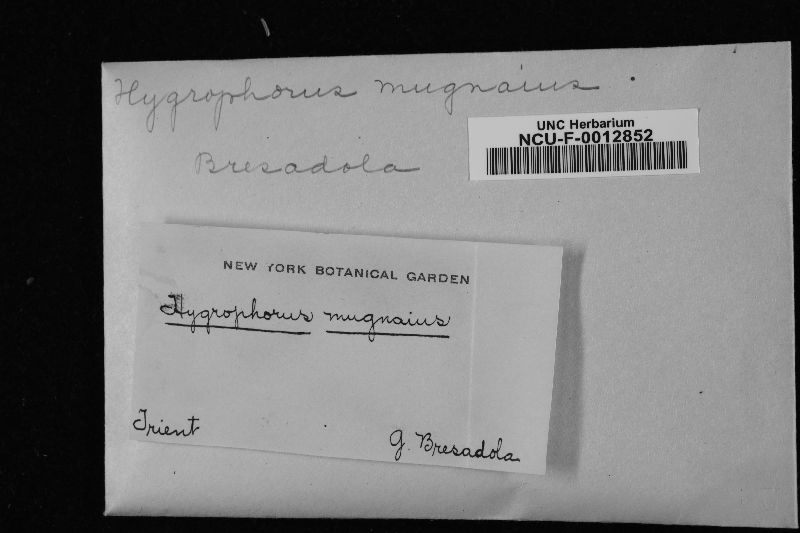 Hygrophorus mugnaius.
UNC Herbarium
NCU-F-0012852
Bresadola
NEW YORK BOTANICAL GARDEN
Hygrophorus mugnaius
Trient
G. Bresadola